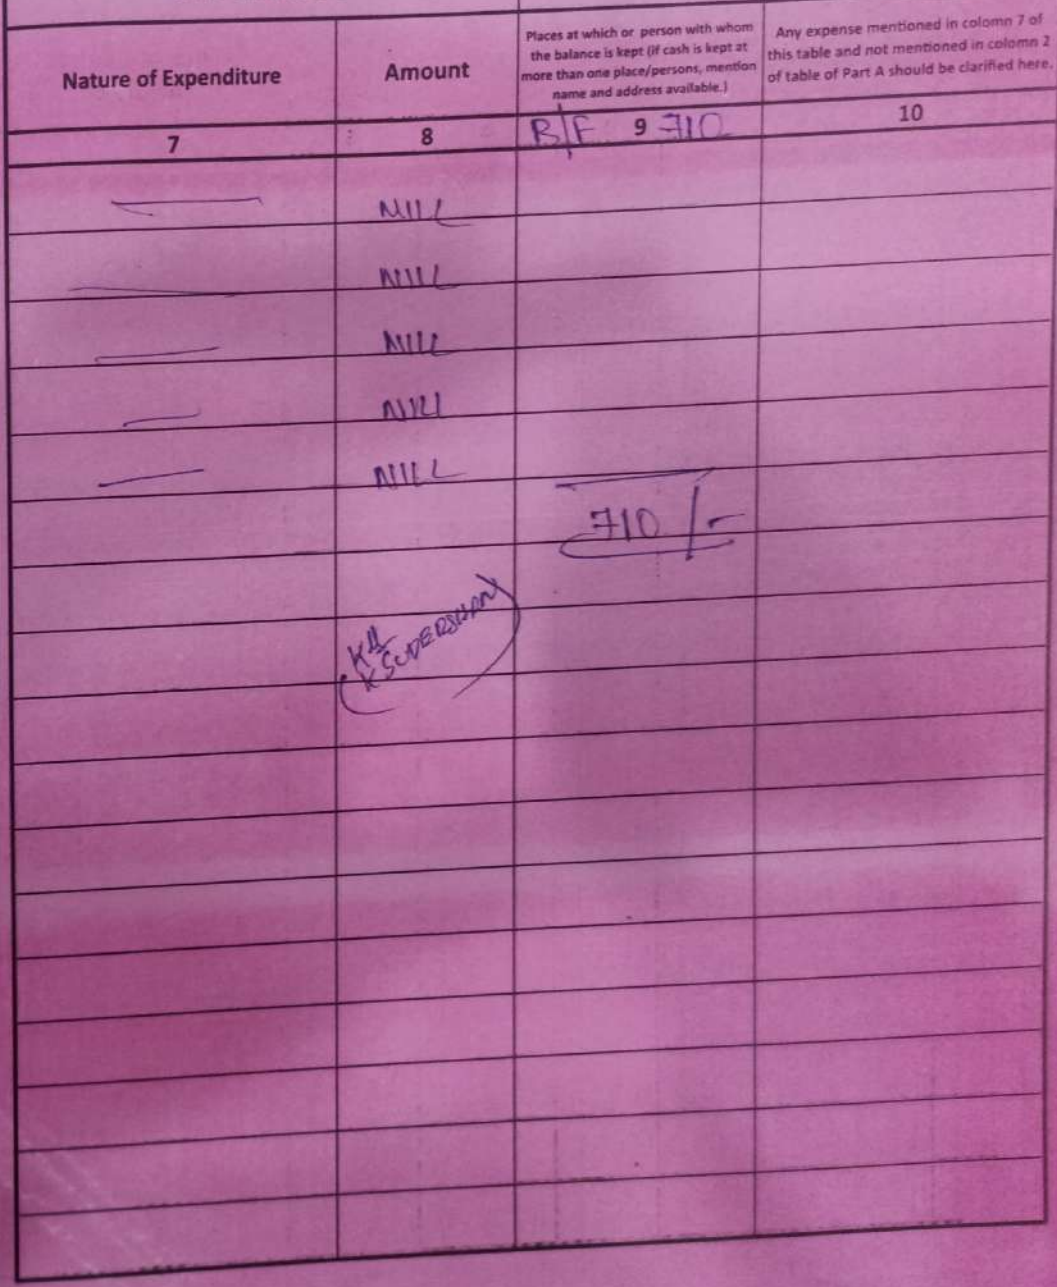 Nature of Expenditure
Amount
Places at which or person with whom
the balance is kept (if cash is kept at
more than one place/persons, mention
name and address available.)
Any expense mentioned in colomn 7 of
this table and not mentioned in colomn 2
of table of Part A should be clarified here.
7
8
B/F 9 710
10
NILL
NILL
NILL
NILL
NILL
710/-
K SUDERSHAN